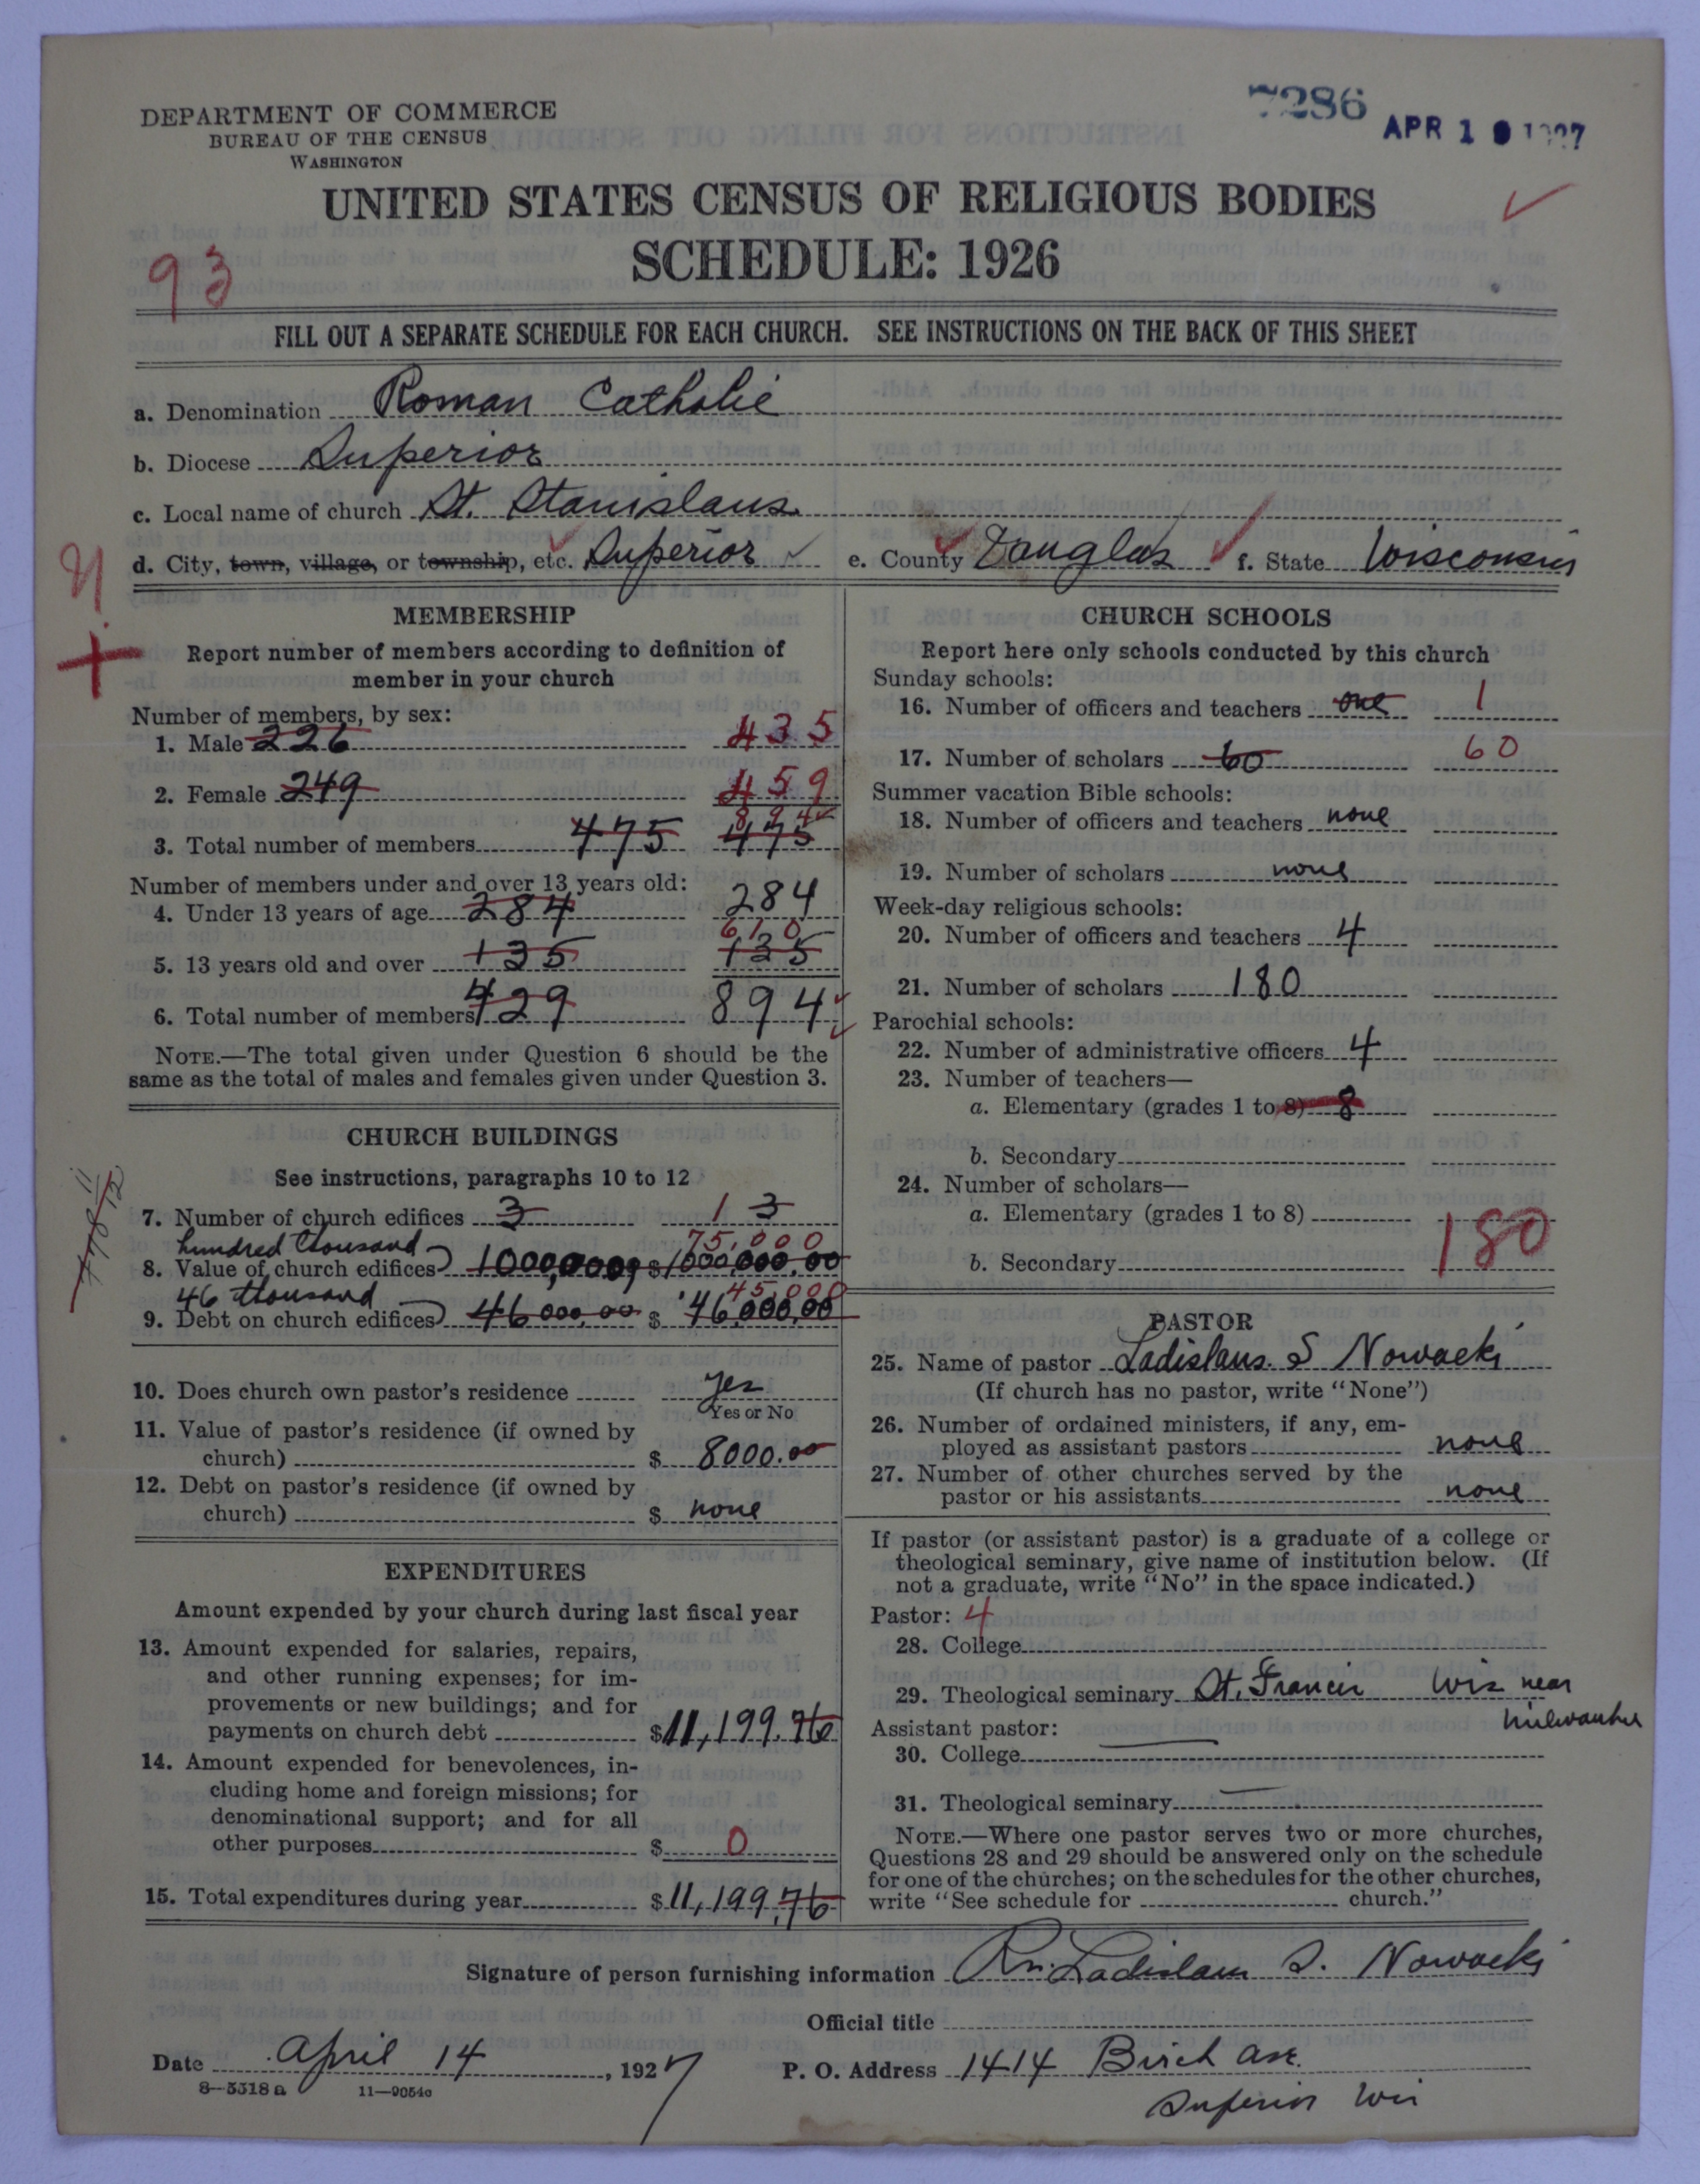 7286 APR 19 1927
DEPARTMENT OF COMMERCE
BUREAU OF THE CENSUS
WASHINGTON
UNITED STATES CENSUS OF RELIGIOUS BODIES
SCHEDULE: 1926
93
FILL OUT A SEPARATE SCHEDULE FOR EACH CHURCH. SEE INSTRUCTIONS ON THE BACK OF THIS SHEET
a. Denomination Roman Catholic
b. Diocese Superior
c. Local name of church St. Stanislaus
d. City, town, village, or township, etc. Superior e. County Douglas f. State Wisconsin
MEMBERSHIP
Report number of members according to definition of
member in your church
Number of members, by sex:
1. Male 226 435
2. Female 249 459
894
3. Total number of members 475 475
Number of members under and over 13 years old:
4. Under 13 years of age 284 284
610
5. 13 years old and over 135 135
6. Total number of members 429 894
NOTE.—The total given under Question 6 should be the
same as the total of males and females given under Question 3.
CHURCH BUILDINGS
See instructions, paragraphs 10 to 12
7. Number of church edifices 3 1 3
hundred thousand 75,000
8. Value of church edifices 1000,000 $ 1000,000.00
46 thousand 45,000
9. Debt on church edifices 46000.00 $ 46,000.00
10. Does church own pastor's residence yes
Yes or No
11. Value of pastor's residence (if owned by
church) $ 8000.00
12. Debt on pastor's residence (if owned by
church) $ none
EXPENDITURES
Amount expended by your church during last fiscal year
13. Amount expended for salaries, repairs,
and other running expenses; for im-
provements or new buildings; and for
payments on church debt $ 11,199.76
14. Amount expended for benevolences, in-
cluding home and foreign missions; for
denominational support; and for all
other purposes $ 0
15. Total expenditures during year $ 11,199.76
CHURCH SCHOOLS
Report here only schools conducted by this church
Sunday schools:
16. Number of officers and teachers one 1
17. Number of scholars 60 60
Summer vacation Bible schools:
18. Number of officers and teachers none
19. Number of scholars none
Week-day religious schools:
20. Number of officers and teachers 4
21. Number of scholars 180
Parochial schools:
22. Number of administrative officers 4
23. Number of teachers—
a. Elementary (grades 1 to 8) 8
b. Secondary
24. Number of scholars—
a. Elementary (grades 1 to 8)
180
b. Secondary
PASTOR
25. Name of pastor Ladislaus S Nowacki
(If church has no pastor, write "None")
26. Number of ordained ministers, if any, em-
ployed as assistant pastors none
27. Number of other churches served by the
pastor or his assistants none
If pastor (or assistant pastor) is a graduate of a college or
theological seminary, give name of institution below. (If
not a graduate, write "No" in the space indicated.)
Pastor: 4
28. College
29. Theological seminary St. Francis Wis near
Milwaukee
Assistant pastor:
30. College
31. Theological seminary
NOTE.—Where one pastor serves two or more churches,
Questions 28 and 29 should be answered only on the schedule
for one of the churches; on the schedules for the other churches,
write "See schedule for church."
Signature of person furnishing information Rev Ladislaus S. Nowacki
Official title
Date April 14, 1927 P. O. Address 1414 Birch ave.
8—5518 a 11—9054a
Superior Wis